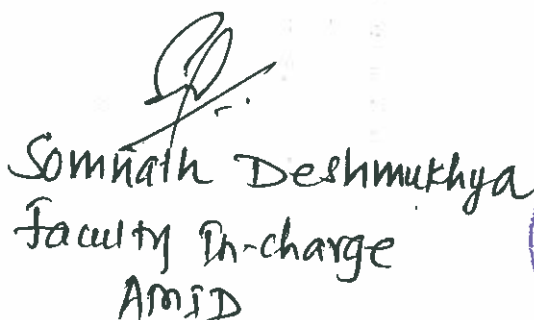 Somnath Deshmukhya
Faculty In-charge
AMJD